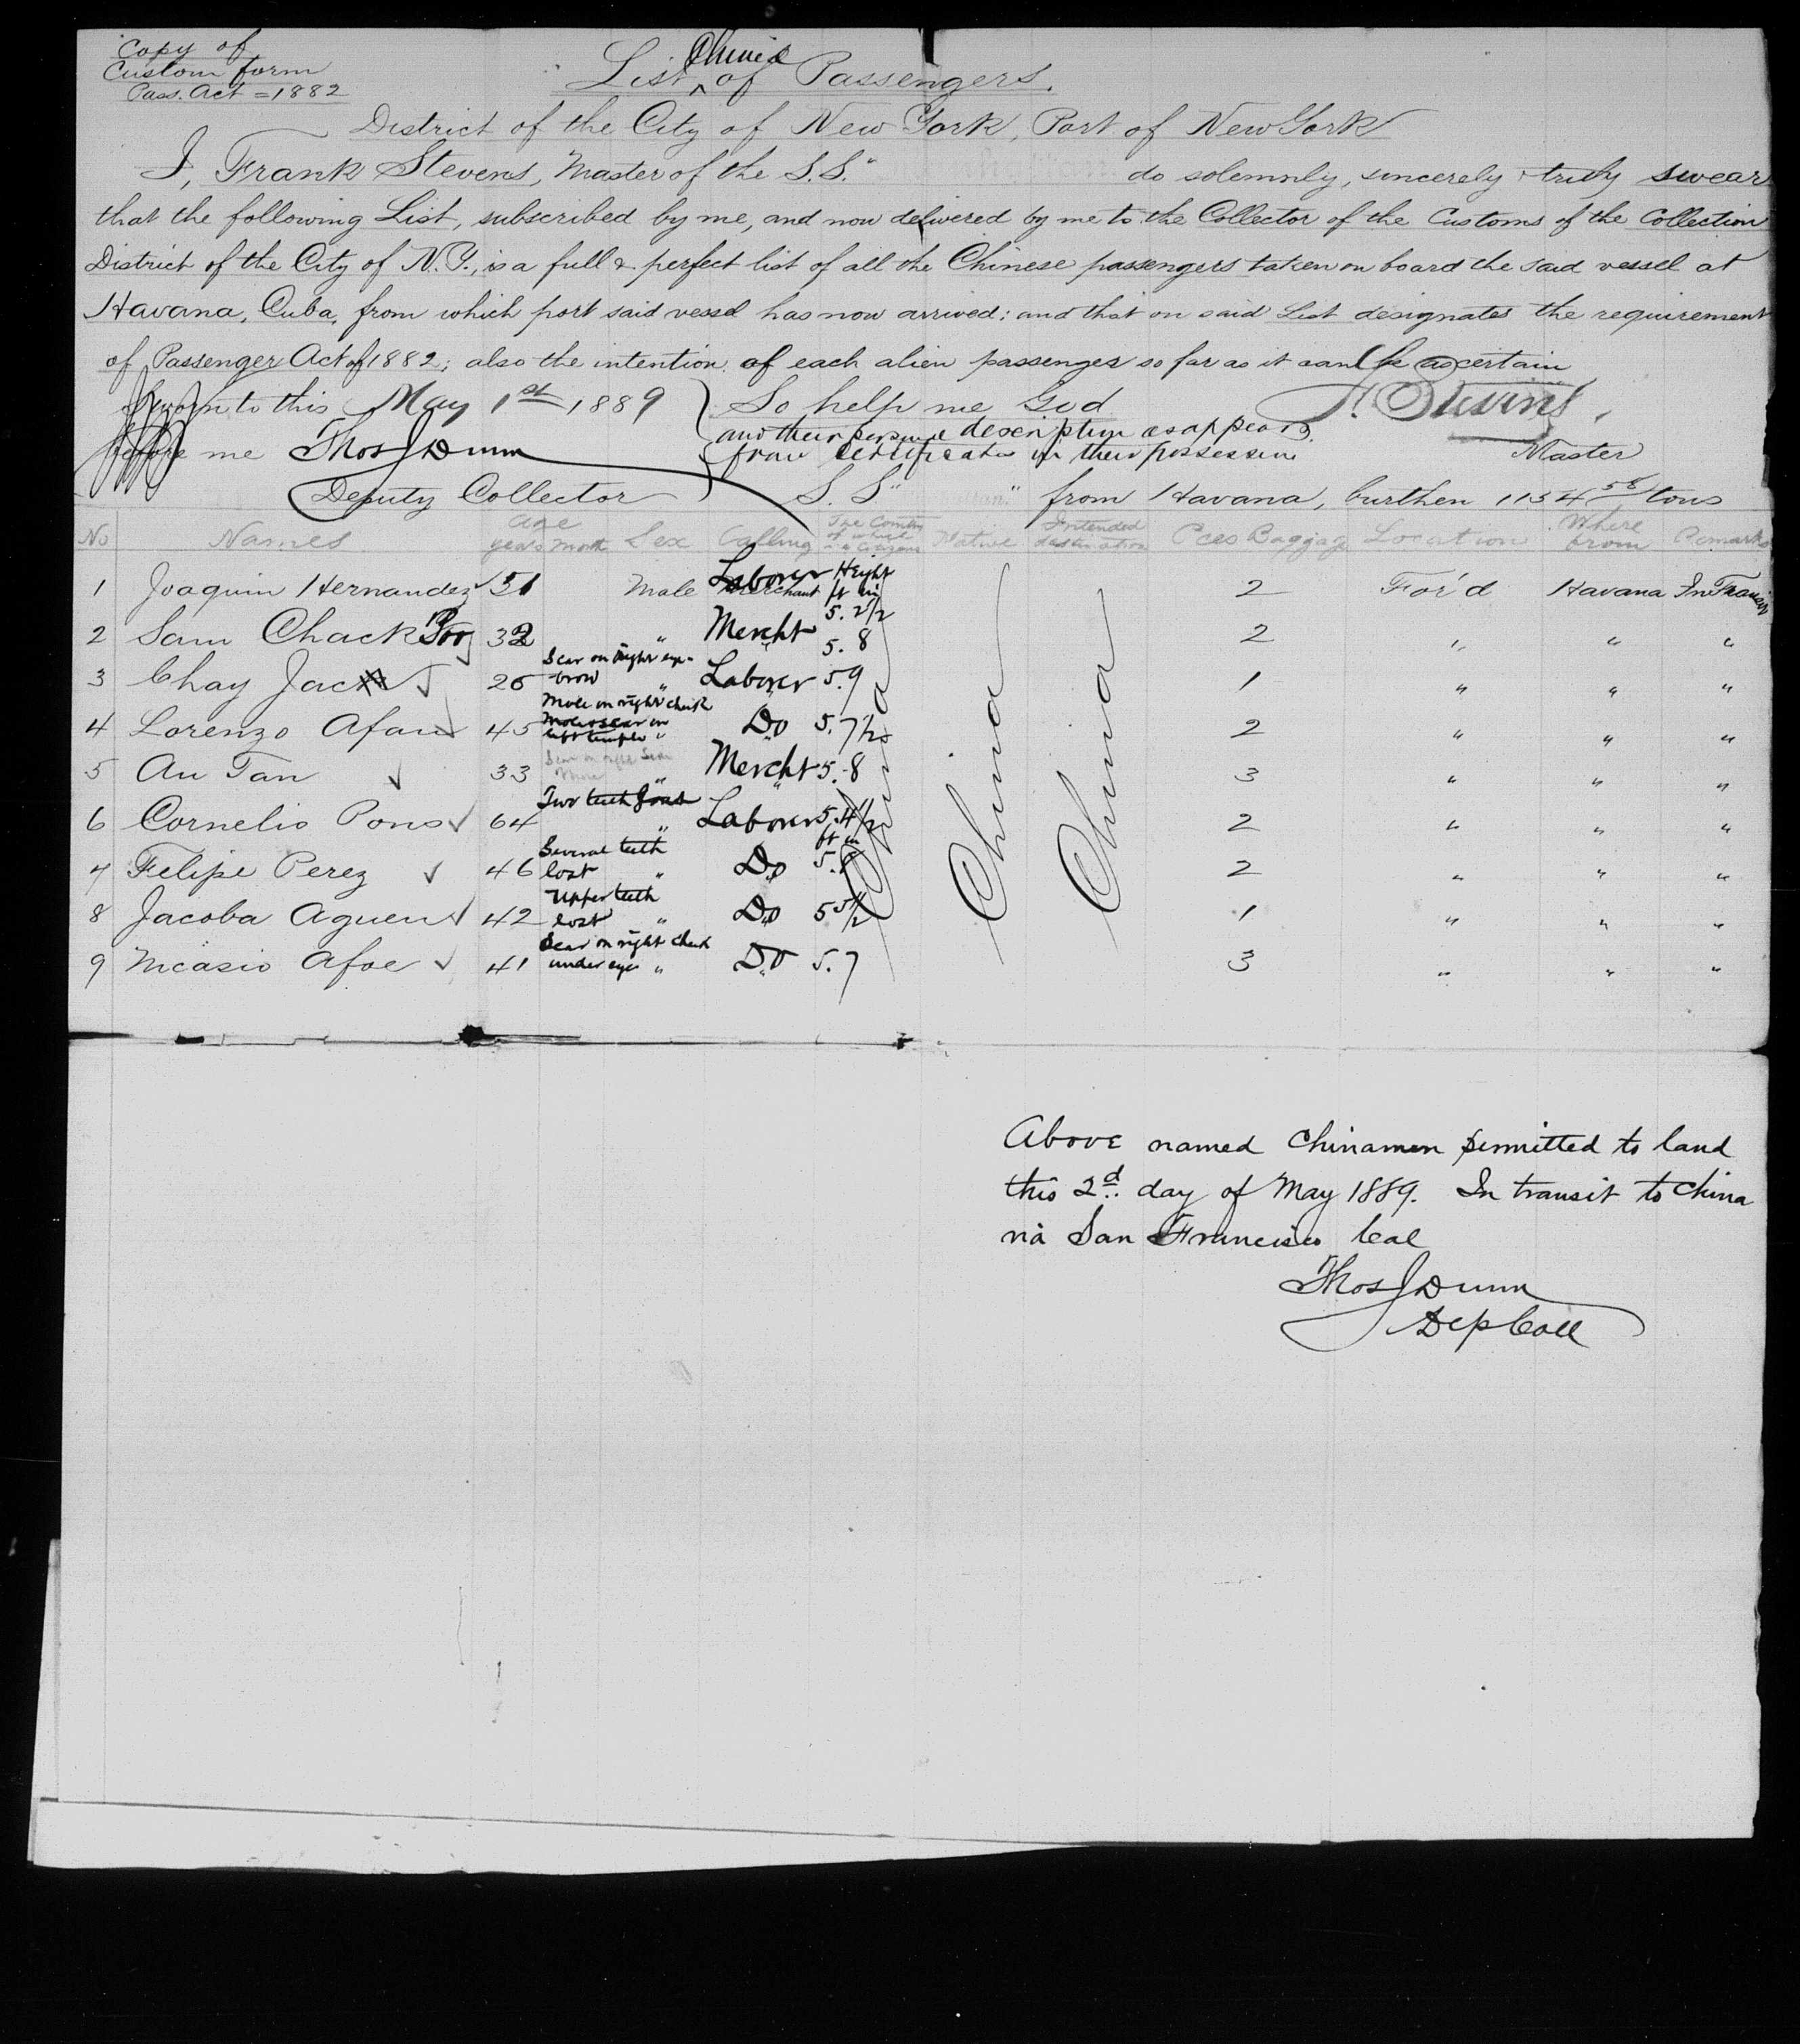 Copy of
Custom form
Pass. Act = 1882
Chinese
List ^ of Passengers.
District of the City of New York, Port of New York
I, Frank Stevens, Master of the S.S. " do solemnly, sincerely & truly swear
that the following List, subscribed by me, and now delivered by me to the Collector of the Customs of the Collection
District of the City of N.Y., is a full & perfect list of all the Chinese passengers taken on board the said vessel at
Havana, Cuba, from which port said vessel has now arrived; and that on said List designates the requirement
of Passenger Act of 1882; also the intention of each alien passenger so far as it can be ascertain
Sworn to this May 1st 1889 So help me God F. Stevens,
and their personal description as appears
before me Thos J Dunn from certificates in their possession Master
Deputy Collector S.S" " from Havana, burthen 1134 58 tons
No Names Age years Month Sex Calling The Country of which Native Intended destination Pces Baggage Location Where from Remarks
Height
1 Joaquin Hernandez 51 Male Laborer Merchant ft in 5. 2½ 2 For'd Havana In Transit
2 Sam Chack 32 " Mercht 5. 8 2 " " "
Scar on right eye-
3 Chay Jack 26 brow " Laborer 5.9 1 " " "
Mole on right cheek
4 Lorenzo Afan 45 left temple " Do 5. 7½ 2 " " "
5 Au Tan 33 " Mercht 5. 8 3 " " "
Two teeth
6 Cornelio Pons 64 " Laborer 5.4½ 2 " " "
ft in
Several teeth
7 Felipe Perez 46 lost " Do 2 " " "
Upper teeth
8 Jacoba Aguen 42 lost " Do 5 5½ 1 " " "
Scar on right cheek
9 Nicasio Afoe 41 under eye " Do 5. 7 3 " " "
China
China
China
Above named Chinamen permitted to land
this 2d day of May 1889. In transit to China
via San Francisco Cal
Thos J Dunn
Dep Coll